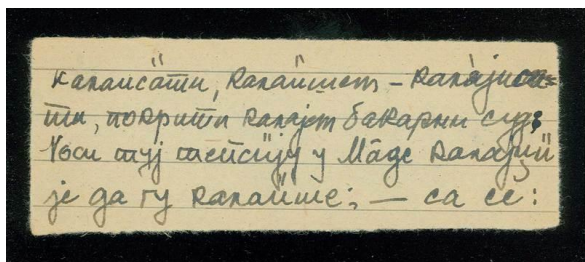 калаисати, калаишем – калајиса-
ти, покрити калајем бакарни суд;
Носи туј тепсију у Маде калајџи
је да гу калаише; — са се: